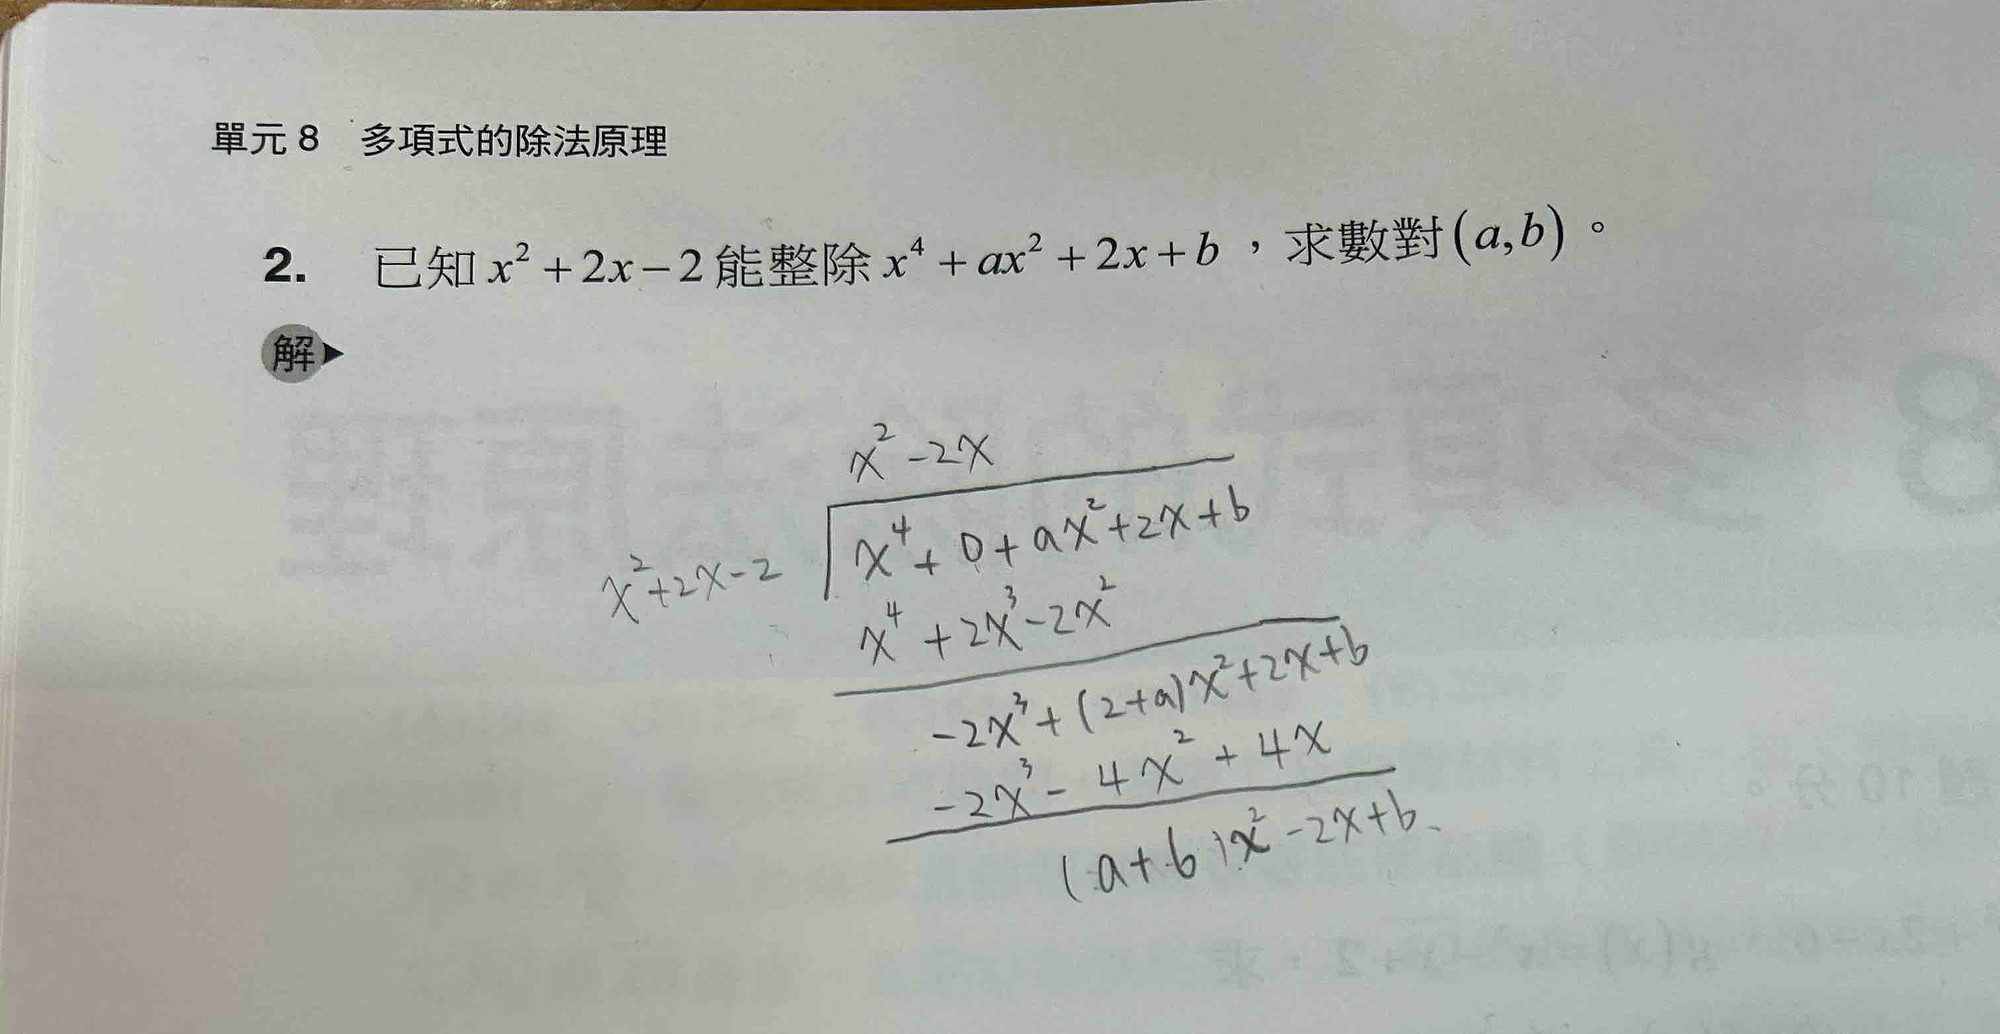 單元 8 多項式的除法原理
2. 已知 x² + 2x − 2 能整除 x⁴ + ax² + 2x + b ,求數對 (a,b) 。
解▶
x² − 2x
x² + 2x − 2 x⁴ + 0 + ax² + 2x + b
x⁴ + 2x³ − 2x²
−2x³ + (2+a)x² + 2x + b
−2x³ − 4x² + 4x
(a+6)x² − 2x + b